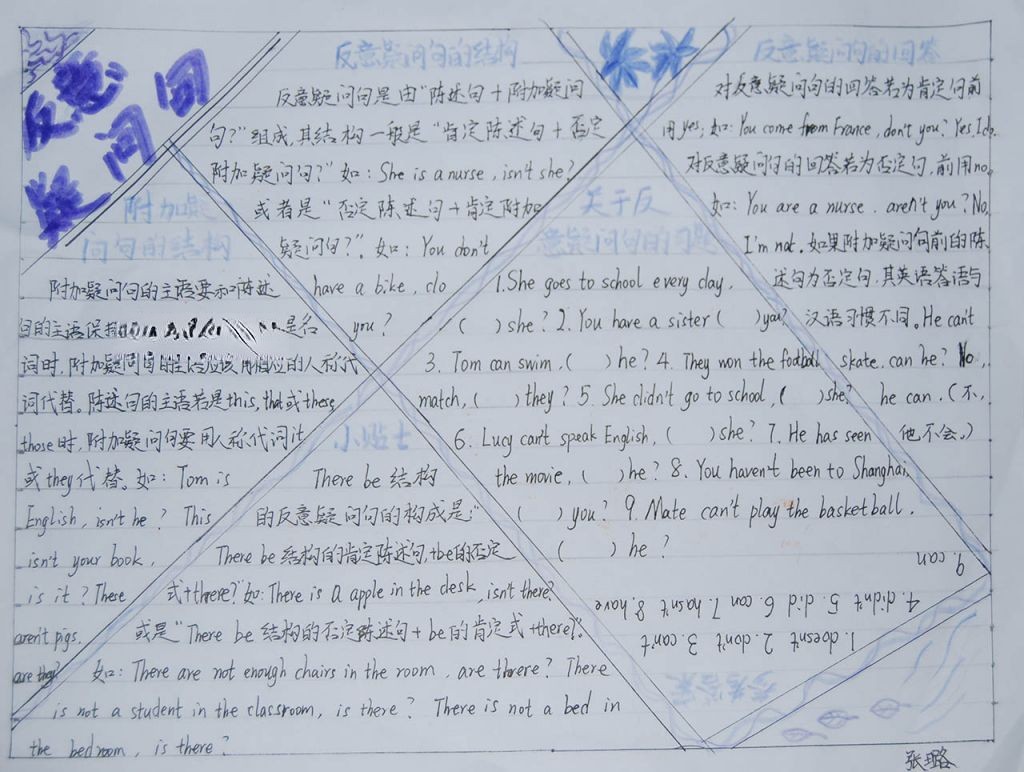 反意疑问句
反意疑问句的结构
反意疑问句是由“陈述句+附加疑问
句?”组成,其结构一般是“肯定陈述句+否定
附加疑问句?”如: She is a nurse, isn't she?
或者是“否定陈述句+肯定附加
疑问句?”. 如: You don't
have a bike, do
you?
反意疑问句的回答
对反意疑问句的回答若为肯定句前
用yes, 如: You come from France, don't you? Yes I do.
对反意疑问句的回答若为否定句,前用no,
如: You are a nurse. aren't you? No,
I'm not. 如果附加疑问句前的陈
述句为否定句,其英语答语与
汉语习惯不同。He can't
skate. can he? No,
he can. (不,
他不会。)
附加疑
问句的结构
附加疑问句的主语要和陈述
句的主语保持 是名
词时,附加疑问句的主语应该用相应的人称代
词代替。陈述句的主语若是this, that或these,
those时,附加疑问句要用人称代词it
或they代替。如: Tom is
English, isn't he? This
isn't your book,
is it? These
aren't pigs.
are they?
关于反
意疑问句的习题
1. She goes to school every day,
( ) she? 2. You have a sister ( ) you?
3. Tom can swim, ( ) he? 4. They won the football
match, ( ) they? 5. She didn't go to school, ( ) she?
6. Lucy can't speak English, ( ) she? 7. He has seen
the movie, ( ) he? 8. You haven't been to Shanghai,
( ) you? 9. Mate can't play the basketball.
( ) he?
小贴士
There be 结构
的反意疑问句的构成是:“
There be 结构的肯定陈述句,+be的否定
式+there?”如: There is a apple in the desk, isn't there?
或是“There be 结构的否定陈述句+be的肯定式+there?”.
如: There are not enough chairs in the room, are there? There
is not a student in the classroom, is there? There is not a bed in
the bedroom, is there?
参考答案
1. doesn't 2. don't 3. can't
4. didn't 5. did 6. can 7. hasn't 8. have
9. can
张璐